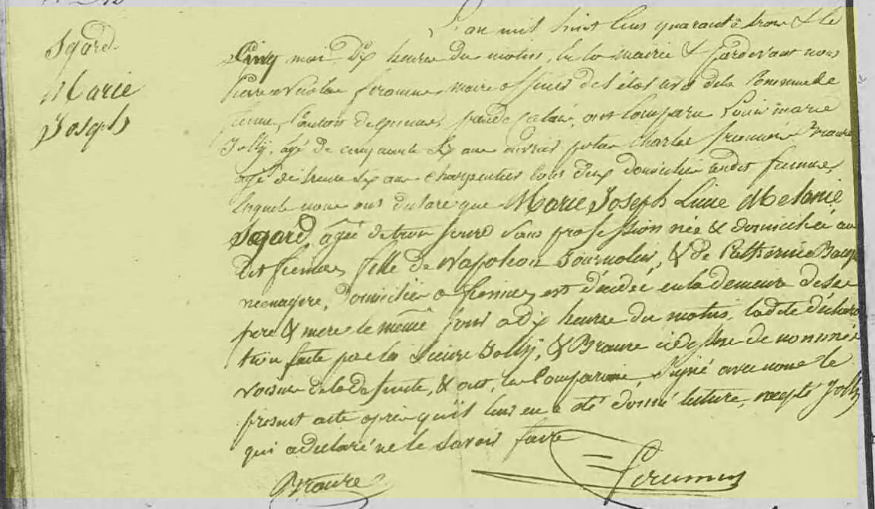 Sgard
Marie
Joseph
L'an mil huit cens quarante trois & le
Cinq mai, Dix heures du matin, En la mairie & pardevant nous
pierre nicolas maire officier de l'état civil de la Commune de
fiennes, Canton de guines, pas de calais, ont Comparu Louis marie
Jolly, agé de cinquante ans ouvrier Charles Braure
agé de trente ans Charpentier tous deux domiciliés audit fiennes,
lesquels nous ont déclaré que Marie Joseph Lucie Melanie
Sgard, agée de trois jours sans profession née & domiciliée au
dit fiennes, fille de Napoléon Journalier, & de Catherine
menagere, Domiciliés a fiennes, est décédée en la demeure de ses
pere & mere le même jour a dix heures du matin, ladite déclara
tion faite par les Sieurs Jolly, & Braure ci dessus denommés
voisins de la défunte, & ont, les Comparans, Signé avec nous le
present acte après qu'il leur en a été donné lecture, excepté Jolly
qui a déclaré ne le savoir faire
Braure